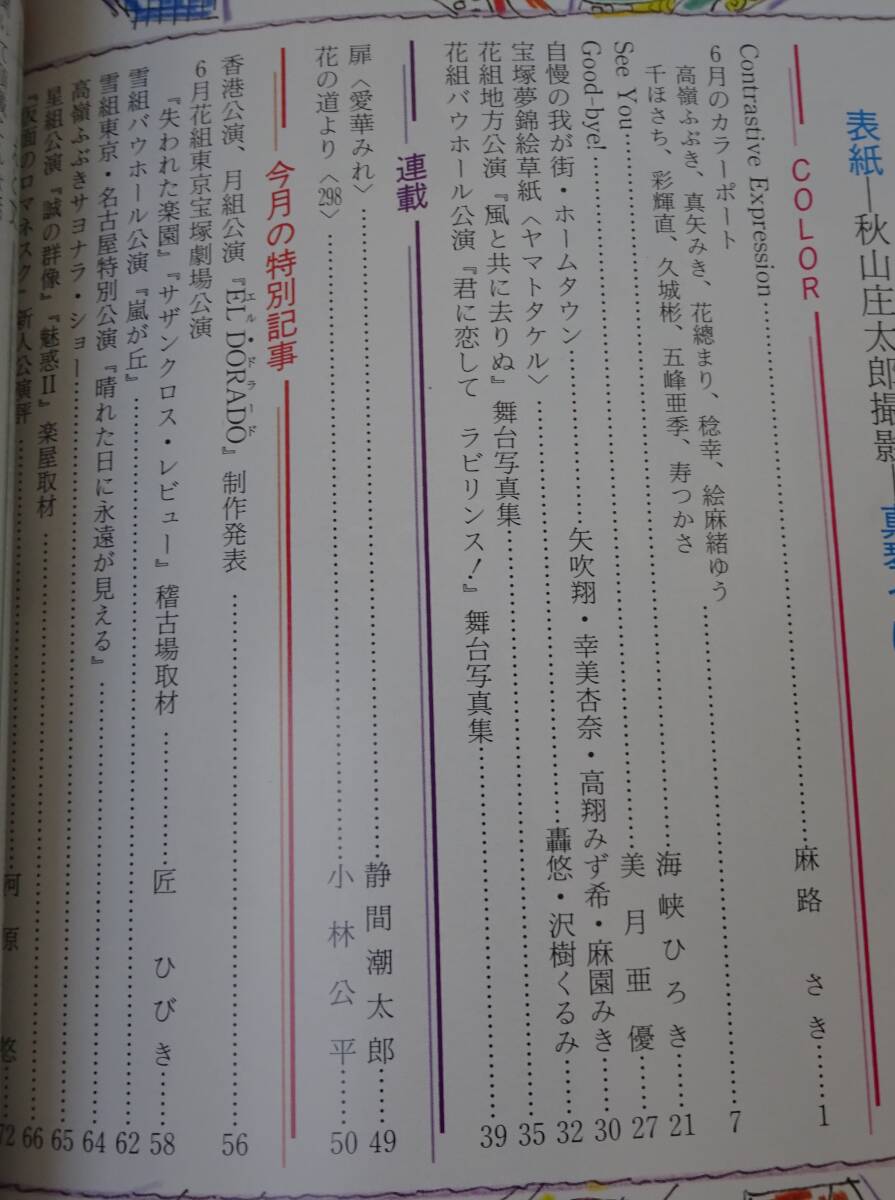 表紙―秋山庄太郎撮影―真琴つ
COLOR
Contrastive Expression……麻路さき……1
6月のカラーポート
高嶺ふぶき、真矢みき、花總まり、稔幸、絵麻緒ゆう
千ほさち、彩輝直、久城彬、五峰亜季、寿つかさ……7
See You……海峡ひろき……21
Good-bye!……美月亜優……27
自慢の我が街・ホームタウン……矢吹翔・幸美杏奈・高翔みず希・麻園みき……30
宝塚夢錦絵草紙〈ヤマトタケル〉……轟悠・沢樹くるみ……32
花組地方公演『風と共に去りぬ』舞台写真集……35
花組バウホール公演『君に恋して ラビリンス!』舞台写真集……39
連載
扉〈愛華みれ〉……静間潮太郎……49
花の道より〈298〉……小林公平……50
今月の特別記事
香港公演、月組公演『EL DORADO』制作発表……56
エル・ドラード
6月花組東京宝塚劇場公演
『失われた楽園』『サザンクロス・レビュー』稽古場取材……匠 ひびき……58
雪組バウホール公演『嵐が丘』……62
雪組東京・名古屋特別公演『晴れた日に永遠が見える』……64
高嶺ふぶきサヨナラ・ショー……65
星組公演『誠の群像』『魅惑II』楽屋取材……66
『仮面のロマネスク』新人公演評……河原 悠……72